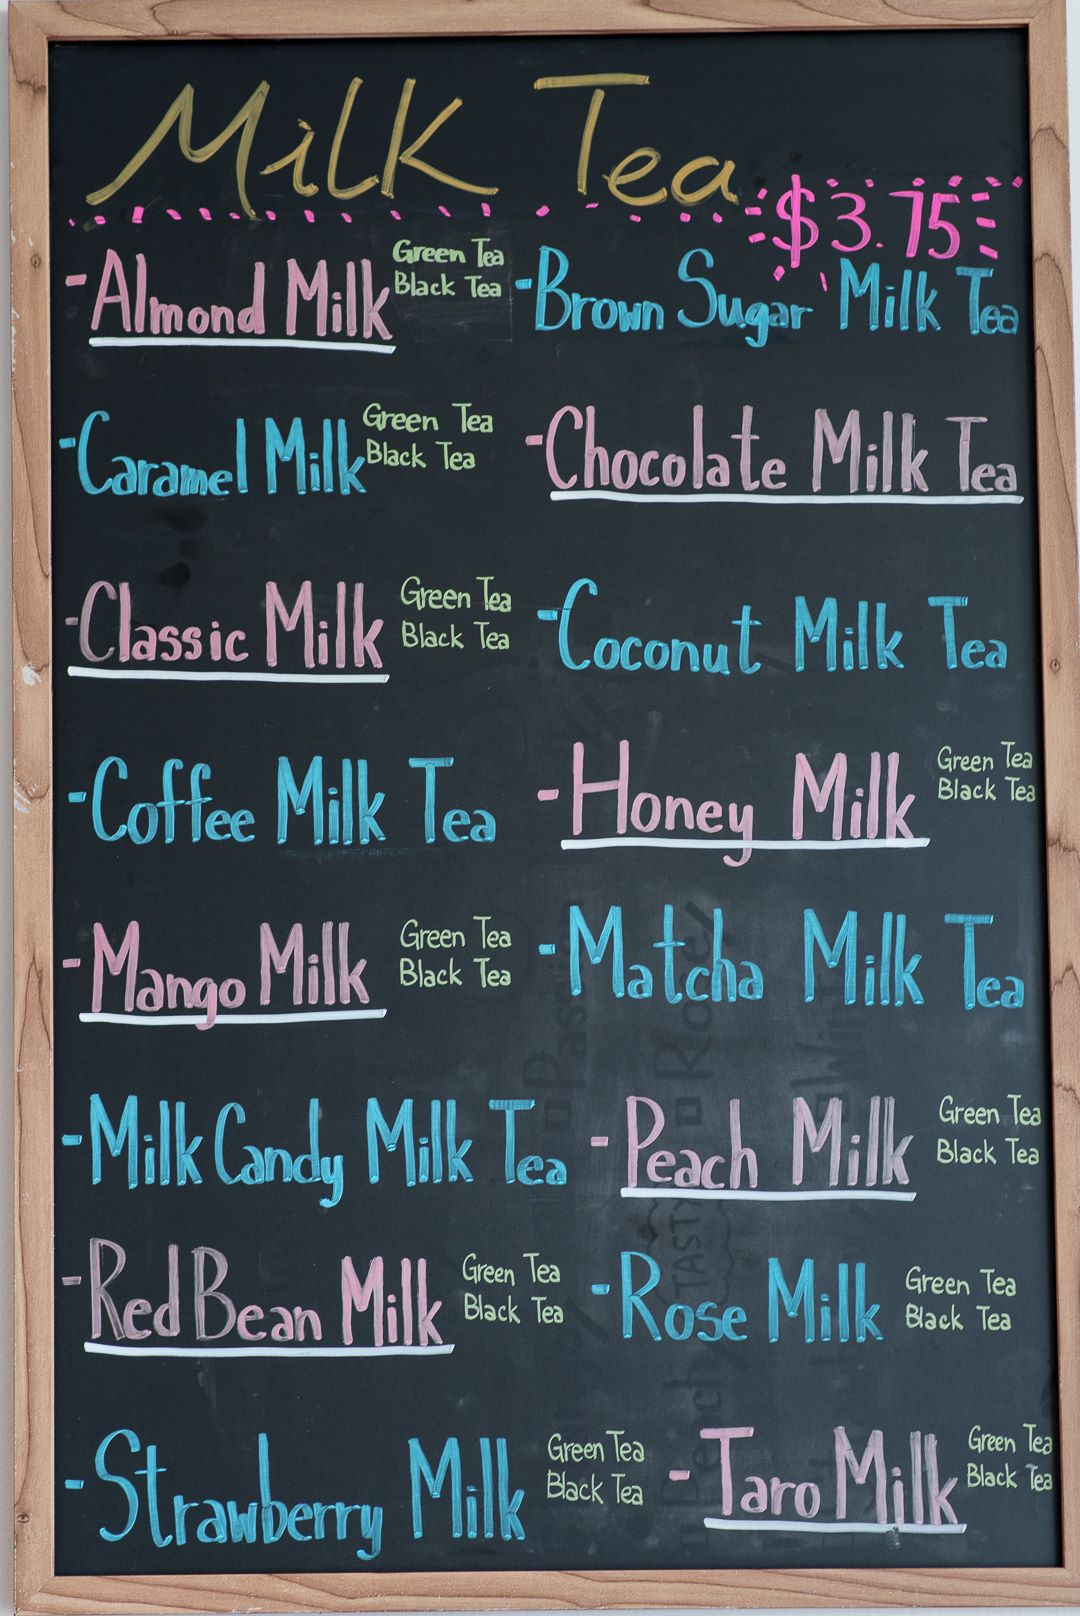 Milk Tea
$3.75
-Almond Milk Green Tea
Black Tea
-Brown Sugar Milk Tea
-Caramel Milk Green Tea
Black Tea
-Chocolate Milk Tea
-Classic Milk Green Tea
Black Tea
-Coconut Milk Tea
-Coffee Milk Tea
-Honey Milk Green Tea
Black Tea
-Mango Milk Green Tea
Black Tea
-Matcha Milk Tea
-Milk Candy Milk Tea
-Peach Milk Green Tea
Black Tea
-Red Bean Milk Green Tea
Black Tea
-Rose Milk Green Tea
Black Tea
-Strawberry Milk Green Tea
Black Tea
-Taro Milk Green Tea
Black Tea
TASTY
Rose
Peach